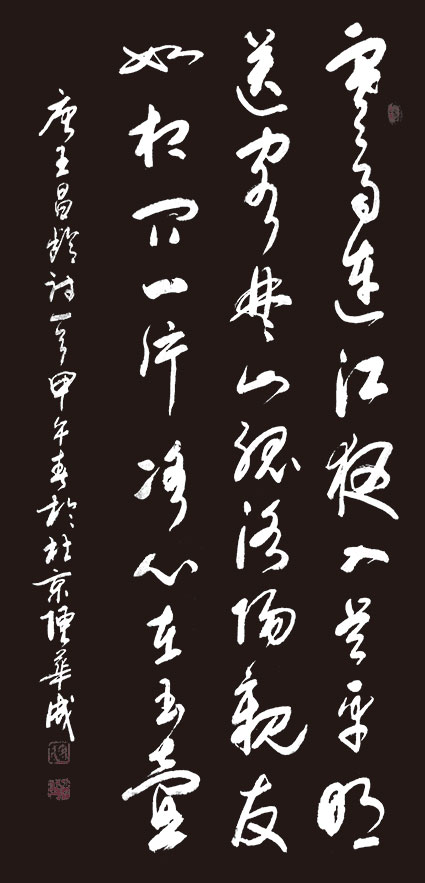 寒雨連江夜入吴平明
送客楚山孤洛陽親友
如相問一片冰心在玉壺
唐王昌齡詩一首甲午春於北京華成